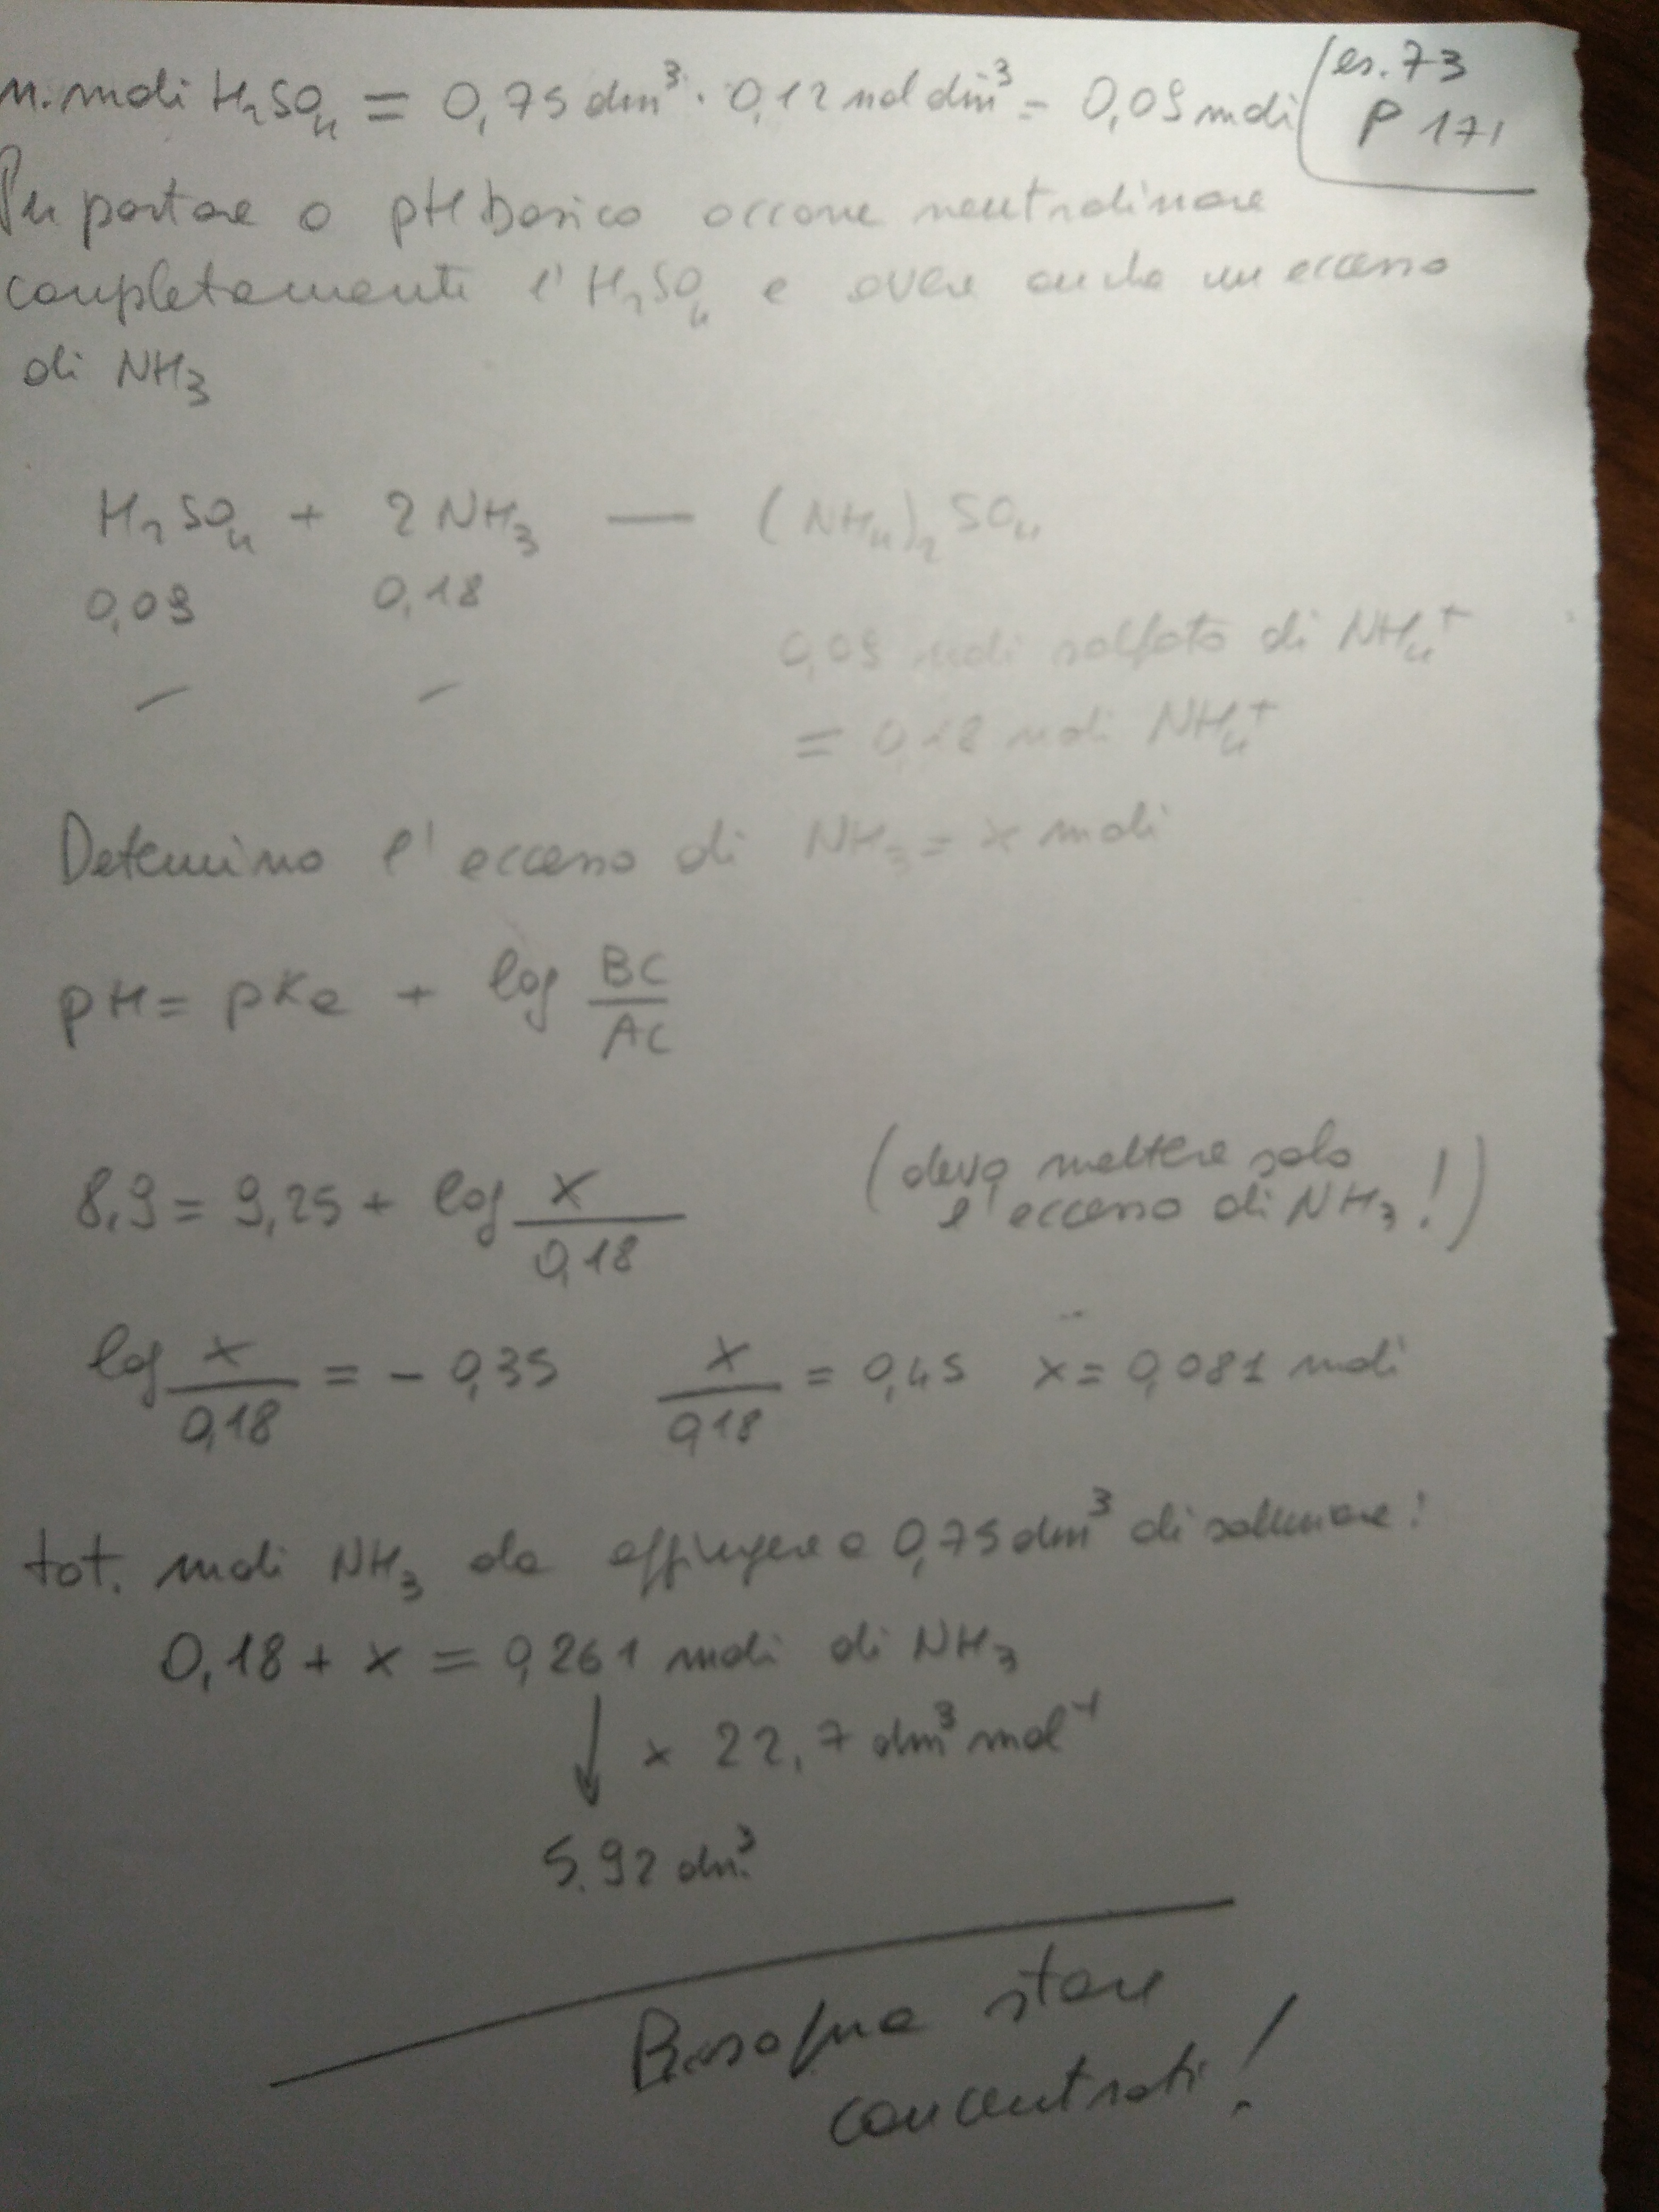 n. moli H₂SO₄ = 0,75 dm³ · 0,12 mol dm³ = 0,09 moli
es. 73
P 171
Per portare a pH basico occorre neutralizzare
completamente l' H₂SO₄ e avere anche un eccesso
di NH₃
H₂SO₄ + 2 NH₃ — (NH₄)₂ SO₄
0,09 0,18
0,09 moli solfato di NH₄⁺
– –
= 0,18 moli NH₄⁺
Determino l' eccesso di NH₃ = x moli
pH = pKa + log BC/AC
8,9 = 9,25 + log x/0,18 (devo mettere solo
l' eccesso di NH₃ !)
log x/0,18 = - 0,35 x/0,18 = 0,45 x = 0,081 moli
tot. moli NH₃ da aggiungere a 0,75 dm³ di soluzione:
0,18 + x = 0,261 moli di NH₃
↓ x 22,7 dm³ mol⁻¹
5.92 dm³
Bisogna stare
concentrati !